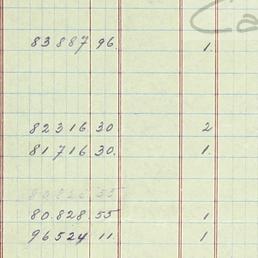 Ca
83887 96. 1.
82316 30 2
81716 30. 1.
80828 55
80.828.55 1
96524 11. 1